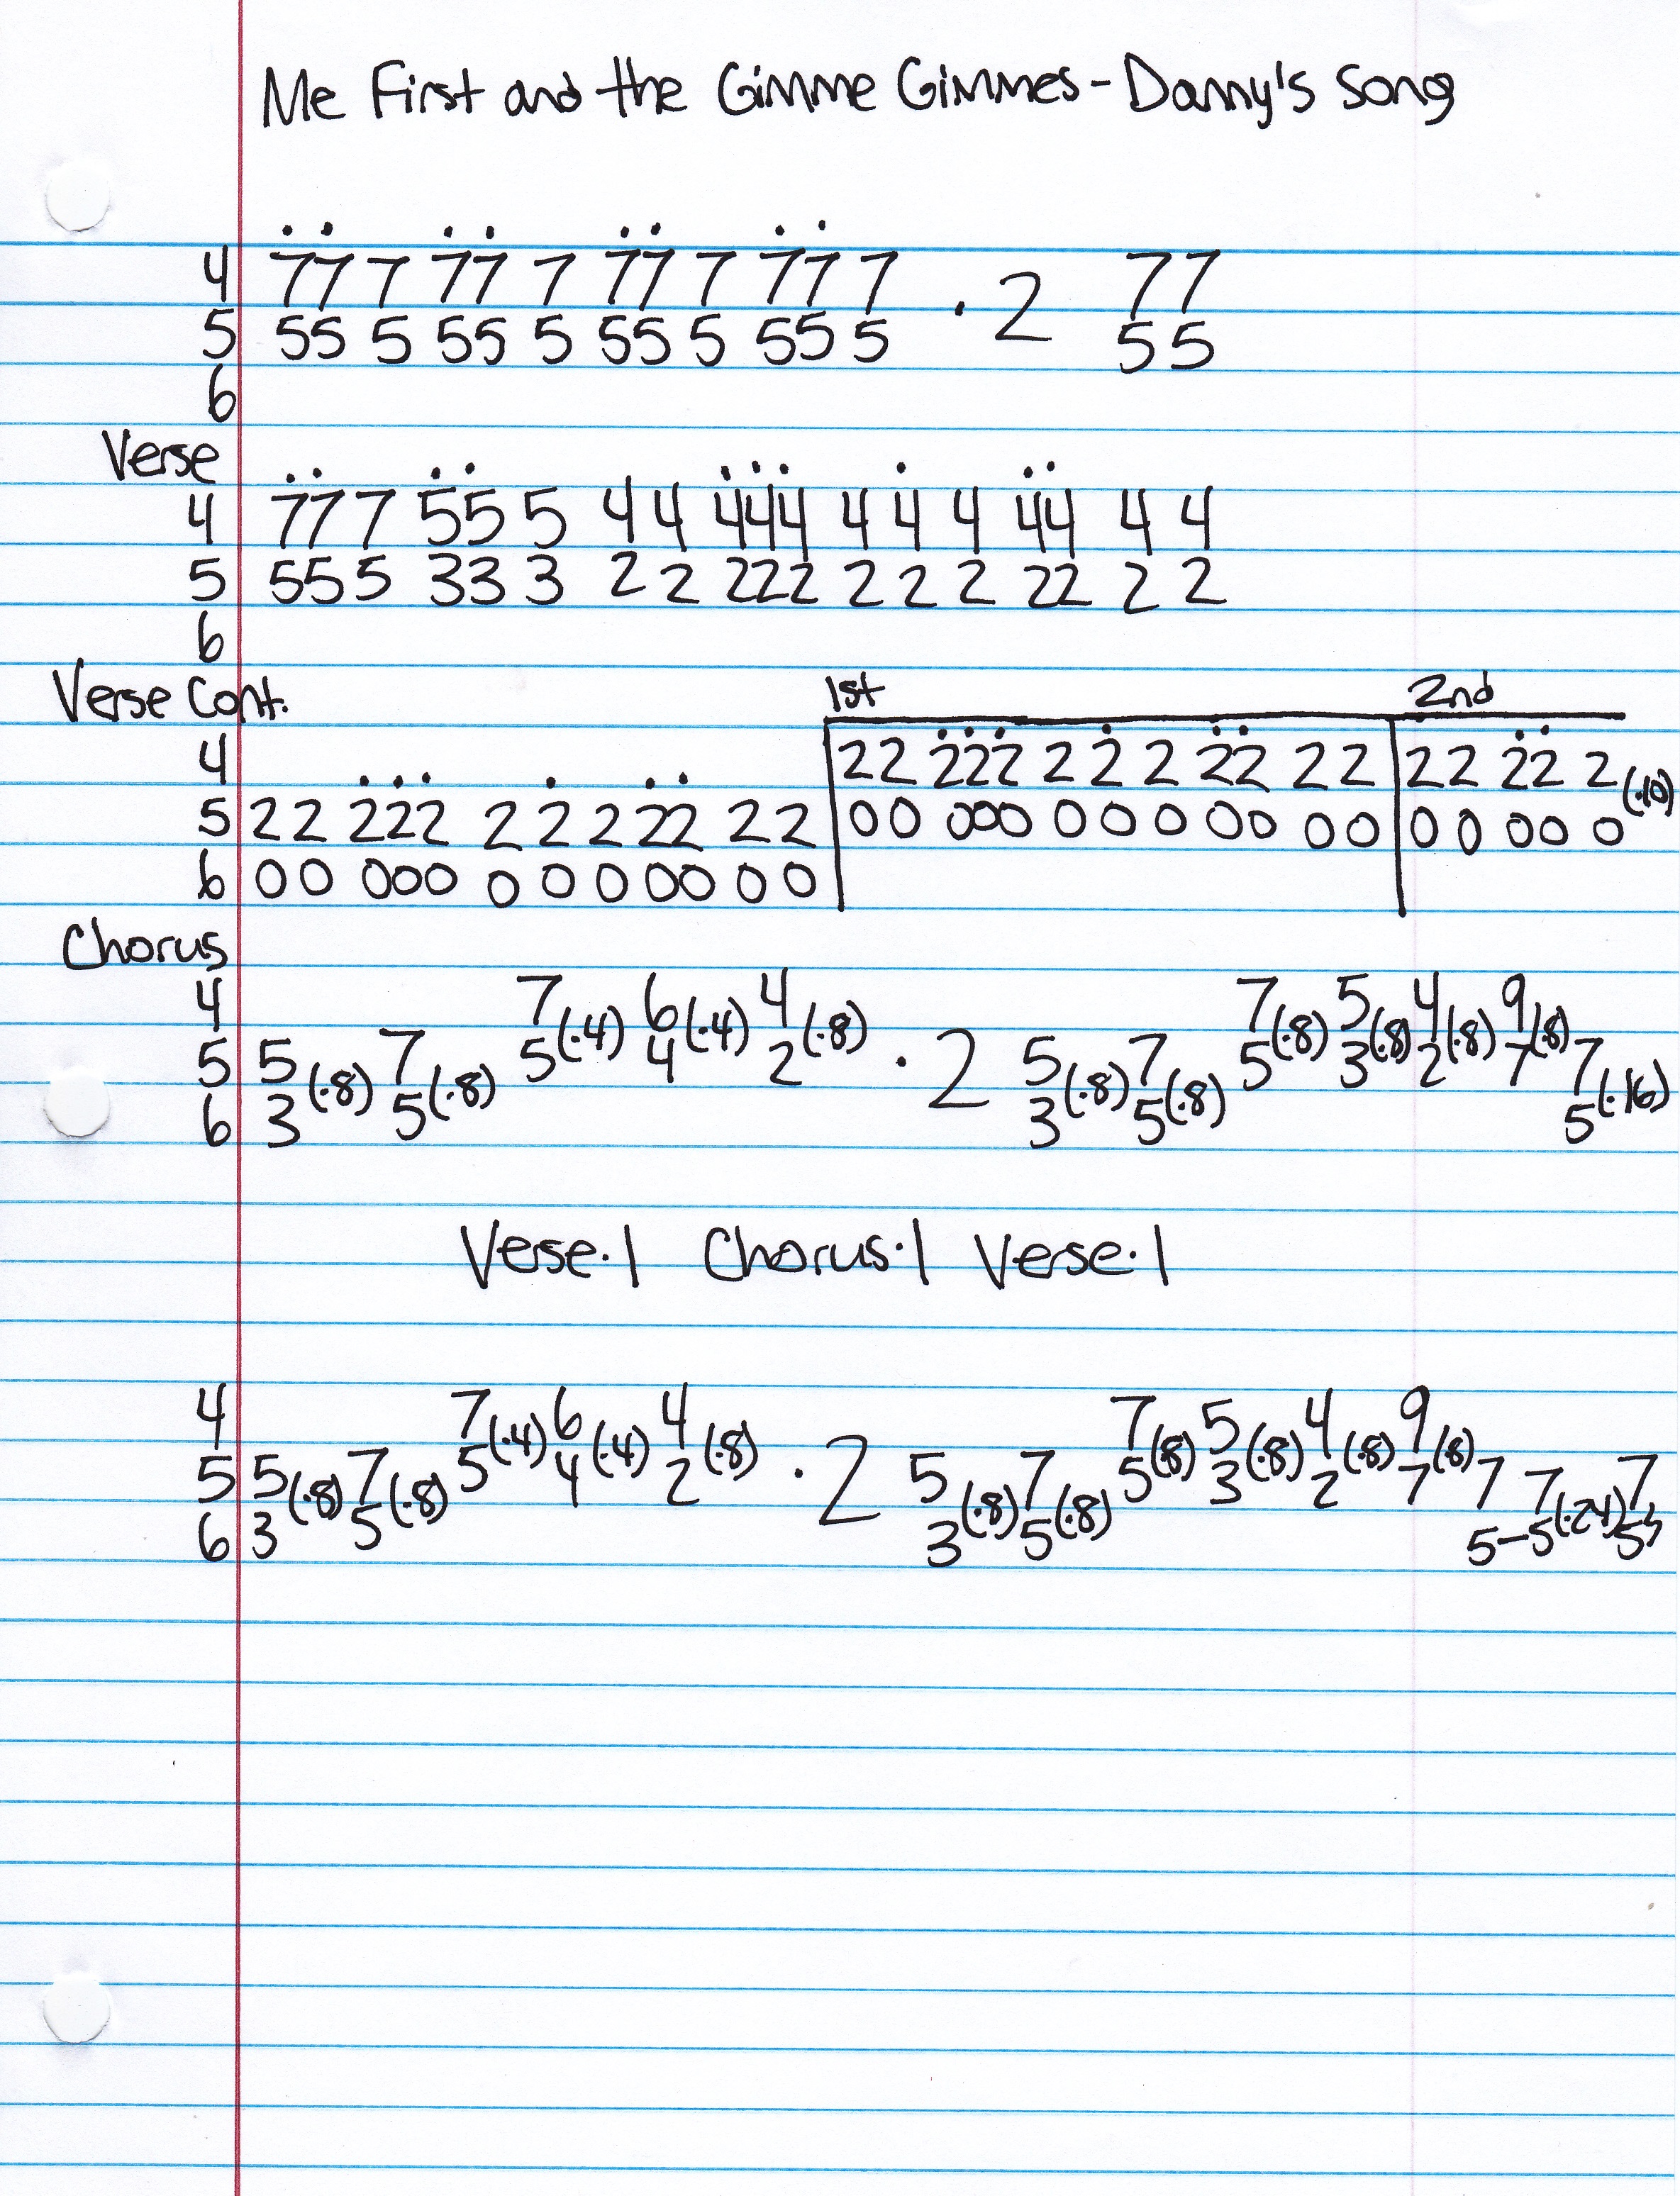 Me First and the Gimme Gimmes - Danny's Song
4 77 7 77 7 77 7 77 7 · 2 77
5 55 5 55 5 55 5 55 5 55
6
Verse
4 77 7 55 5 4 4 444 4 4 4 44 4 4
5 55 5 33 3 2 2 222 2 2 2 22 2 2
6
Verse Cont. 1st 2nd
4 22 222 2 2 2 22 2 2 22 22 2 (·10)
5 22 222 2 2 2 22 22 00 000 0 0 0 00 00 00 00 0
6 00 000 0 0 0 00 00
Chorus
4 7(·4) 6(·4) 4(·8) 7(·8) 5(·8) 4(·8) 9(·8)
5 5(·8) 7(·8) 5 4 2 · 2 5(·8) 7(·8) 5 3 2 7 7(·16)
6 3 5 3 5 5
Verse·1 Chorus·1 Verse·1
4 7(·4) 6(·4) 4(·8) 7(·8) 5(·8) 4(·8) 9(·8)
5 5(·8) 7(·8) 5 4 2 · 2 5(·8) 7(·8) 5 3 2 7 7 7(·24) 7
6 3 5 3 5 5-5 5